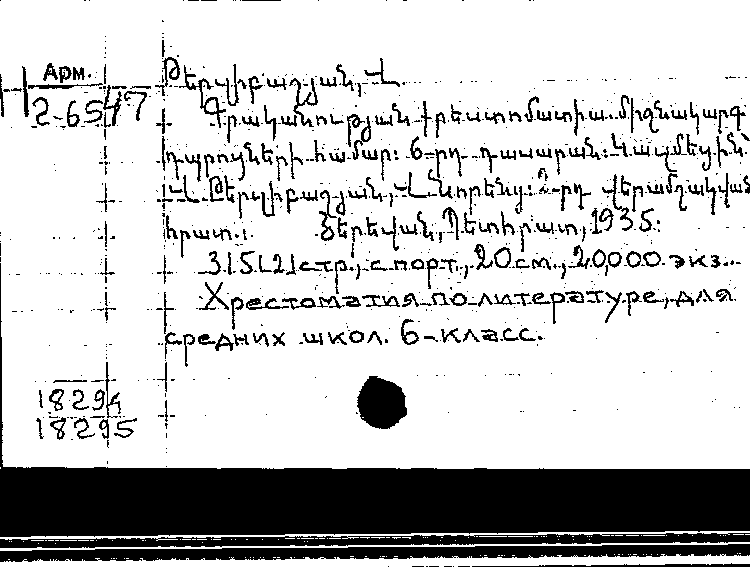 Арм.
2-6547
Թերզիբաշյան, Վ.
Գրականության քրեստոմատիա միջնակարգ
դպրոցների համար: 6-րդ դասարան: Կազմեցին՝
Վ. Թերզիբաշյան, Վ. Նորենց: 2-րդ վերամշակված
հրատ.: Յերեվան, Պետհրատ, 1935:
315[2] стр., с порт., 20 см., 20,000 экз..
Хрестоматия по литературе, для
средних школ. 6-класс.
18294
18295